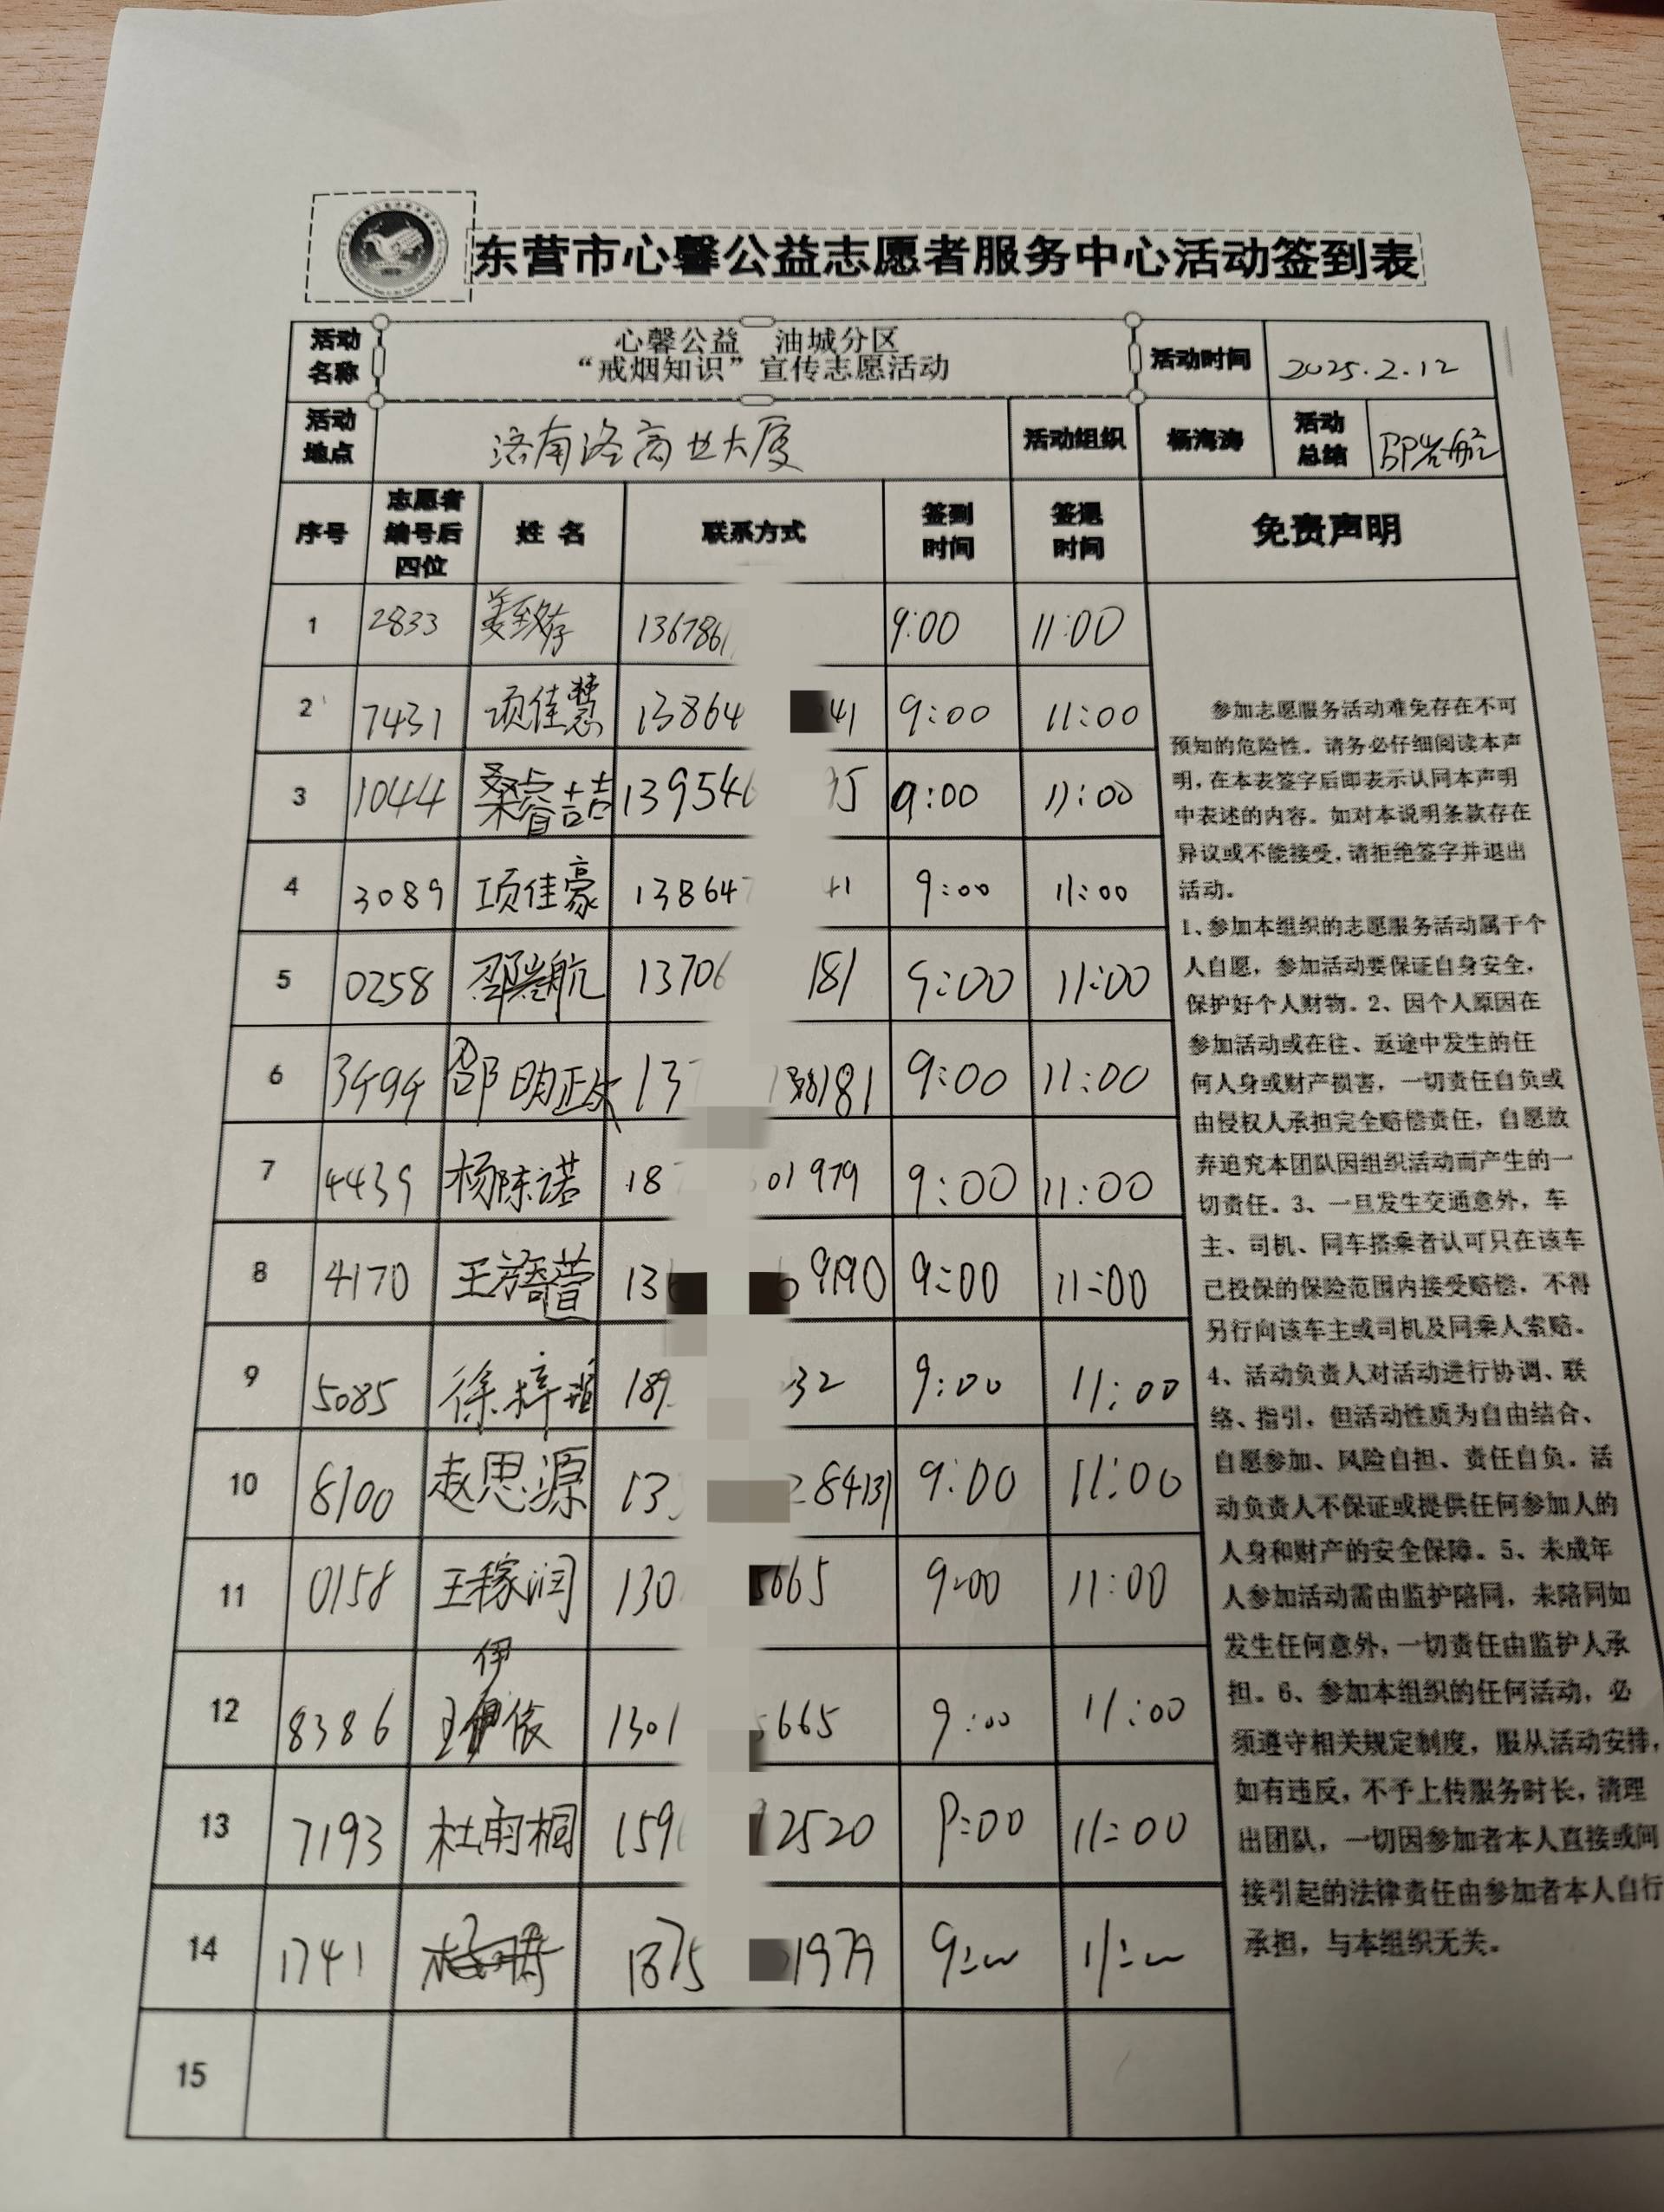 东营市心馨公益志愿者服务中心活动签到表
活动名称 心馨公益 油城分区 活动时间 2025.2.12
“戒烟知识”宣传志愿活动
活动地点 济南路商业大厦 活动组织 杨海涛 活动总结
序号 志愿者编号后四位 姓名 联系方式 签到时间 签退时间 免责声明
1 2833 136786 9:00 11:00
2 7431 项佳慧 13864 41 9:00 11:00
3 1044 桑睿喆 139546 95 9:00 11:00
4 3089 项佳豪 138647 41 9:00 11:00
5 0258 邵岩航 13706 181 9:00 11:00
6 3494 邵明政 13 181 9:00 11:00
7 4439 杨陈诺 18 01979 9:00 11:00
8 4170 王 萱 13 9:00 11:00
9 5085 徐梓 189 32 9:00 11:00
10 8100 赵思源 13 28431 9:00 11:00
11 0158 王稼润 130 5665 9:00 11:00
12 8386 王伊依 1301 5665 9:00 11:00
13 7193 杜雨桐 159 12520 9:00 11:00
14 1741 1875 1979 9:00 11:00
15
参加志愿服务活动难免存在不可
预知的危险性。请务必仔细阅读本声
明,在本表签字后即表示认同本声明
中表述的内容。如对本说明条款存在
异议或不能接受,请拒绝签字并退出
活动。
1、参加本组织的志愿服务活动属于个
人自愿,参加活动要保证自身安全,
保护好个人财物。2、因个人原因在
参加活动或在往、返途中发生的任
何人身或财产损害,一切责任自负或
由侵权人承担完全赔偿责任,自愿放
弃追究本团队因组织活动而产生的一
切责任。3、一旦发生交通意外,车
主、司机、同车搭乘者认可只在该车
已投保的保险范围内接受赔偿,不得
另行向该车主或司机及同乘人索赔。
4、活动负责人对活动进行协调、联
络、指引,但活动性质为自由结合、
自愿参加、风险自担、责任自负。活
动负责人不保证或提供任何参加人的
人身和财产的安全保障。5、未成年
人参加活动需由监护陪同,未陪同如
发生任何意外,一切责任由监护人承
担。6、参加本组织的任何活动,必
须遵守相关规定制度,服从活动安排,
如有违反,不予上传服务时长,清理
出团队,一切因参加者本人直接或间
接引起的法律责任由参加者本人自行
承担,与本组织无关。